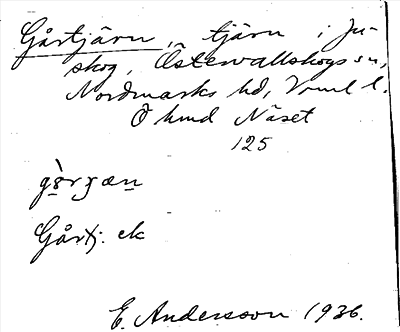 Gårtjärn, tjärn i Ju-
skog, Östervallskogs sn,
Nordmarks hd, Vrml l.
Ö hmd Näset
125
Gårtj. ek
E. Andersson 1936.